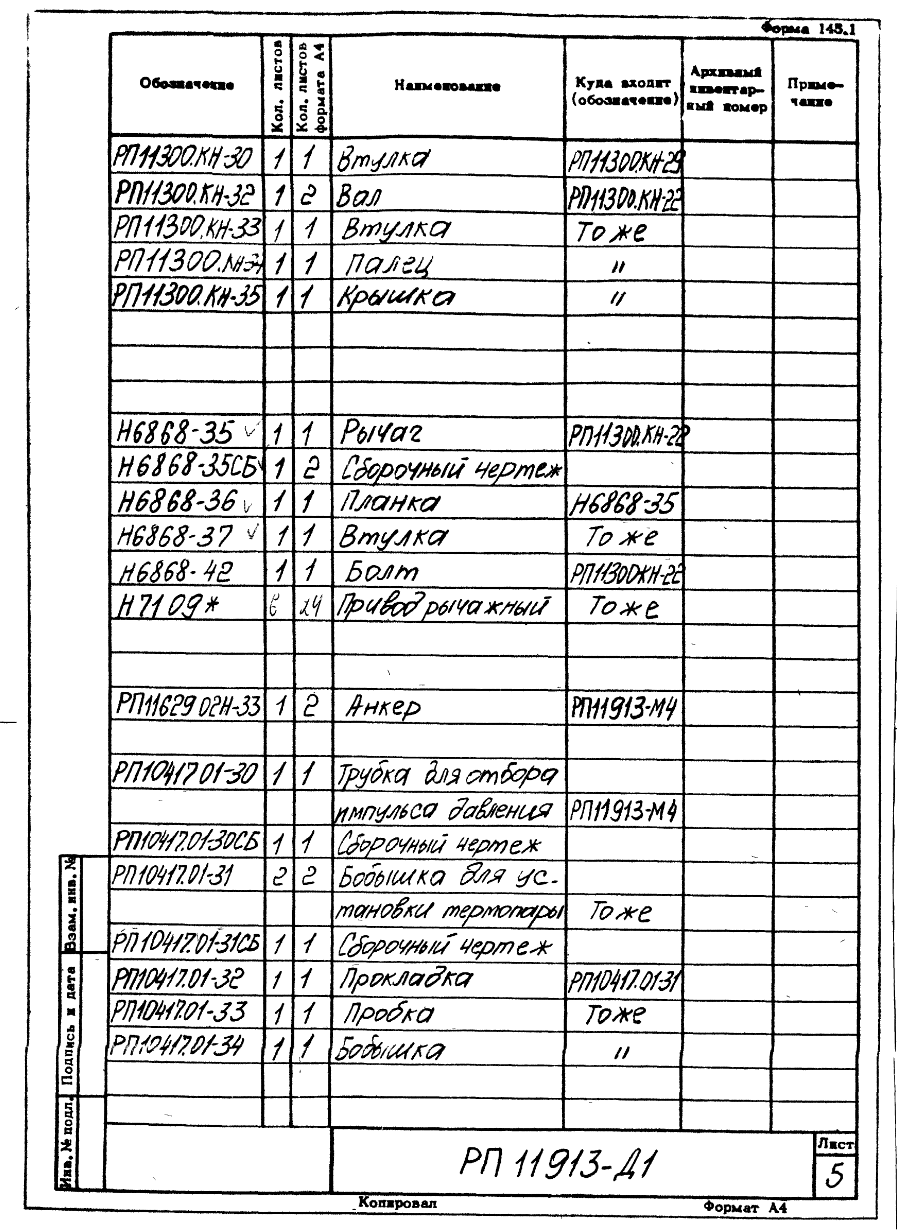 Форма 145.1
Обозначение Кол. листов Кол. листов формата А4 Наименование Куда входит (обозначение) Архивный инвентарный номер Примечание
РП11300.КН-30 1 1 Втулка РП11300.КН-29
РП11300.КН-32 1 2 Вал РП11300.КН-22
РП11300.КН-33 1 1 Втулка То же
РП11300.КН-34 1 1 Палец "
РП11300.КН-35 1 1 Крышка "
Н6868-35 1 1 Рычаг РП11300.КН-22
Н6868-35СБ 1 2 Сборочный чертеж
Н6868-36 1 1 Планка Н6868-35
Н6868-37 1 1 Втулка То же
Н6868-42 1 1 Болт РП11300КН-22
Н7109* 6 24 Привод рычажный То же
РП11629 02Н-33 1 2 Анкер РП11913-М4
РП10417 01-30 1 1 Трубка для отбора
импульса давления РП11913-М4
РП10417.01-30СБ 1 1 Сборочный чертеж
РП10417.01-31 2 2 Бобышка для ус-
тановки термопары То же
РП10417.01-31СБ 1 1 Сборочный чертеж
РП10417.01-32 1 1 Прокладка РП10417.01-31
РП10417.01-33 1 1 Пробка То же
РП10417.01-34 1 1 Бобышка "
Взам. инв. №
Подпись и дата
Инв. № подл.
РП 11913-Д1
Лист
5
Копировал Формат А4